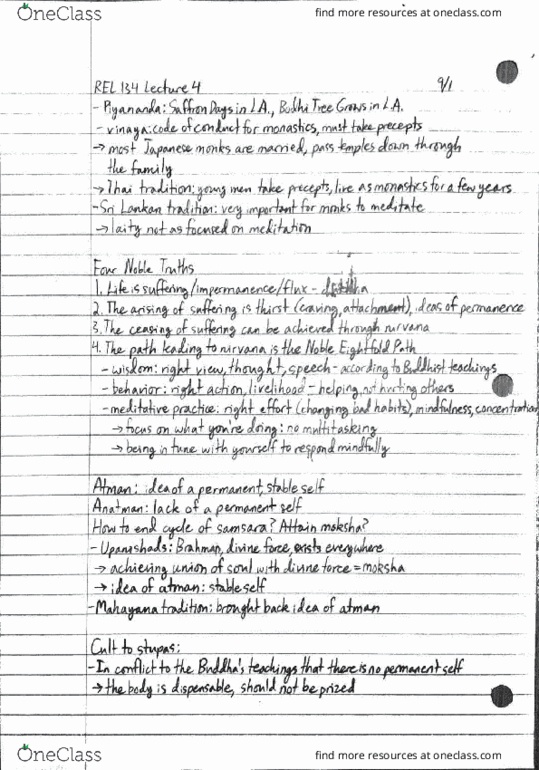 OneClass
find more resources at oneclass.com
REL 134 Lecture 4
9/1
- Piyananda: Saffron Days in L.A., Bodhi Tree Grows in L.A.
- vinaya: code of conduct for monastics, must take precepts
→ most Japanese monks are married, pass temples down through
the family
→ Thai tradition: young men take precepts, live as monastics for a few years
- Sri Lankan tradition: very important for monks to meditate
→ laity not as focused on meditation
Four Noble Truths
1. Life is suffering/impermanence/flux -
2. The arising of suffering is thirst (craving, attachment), ideas of permanence
3. The ceasing of suffering can be achieved through nirvana
4. The path leading to nirvana is the Noble Eightfold Path
- wisdom: right view, thought, speech - according to Buddhist teachings
- behavior: right action, livelihood - helping, not hurting others
- meditative practice: right effort (changing bad habits), mindfulness, concentration
→ focus on what you're doing: no multitasking
→ being in tune with yourself to respond mindfully
Atman: idea of a permanent, stable self
Anatman: lack of a permanent self
How to end cycle of samsara? Attain moksha?
- Upanishads: Brahman, divine force, exists everywhere
→ achieving union of soul with divine force = moksha
→ idea of atman: stable self
- Mahayana tradition: brought back idea of atman
Cult to stupas:
- In conflict to the Buddha's teachings that there is no permanent self
→ the body is dispensable, should not be prized
OneClass
find more resources at oneclass.com